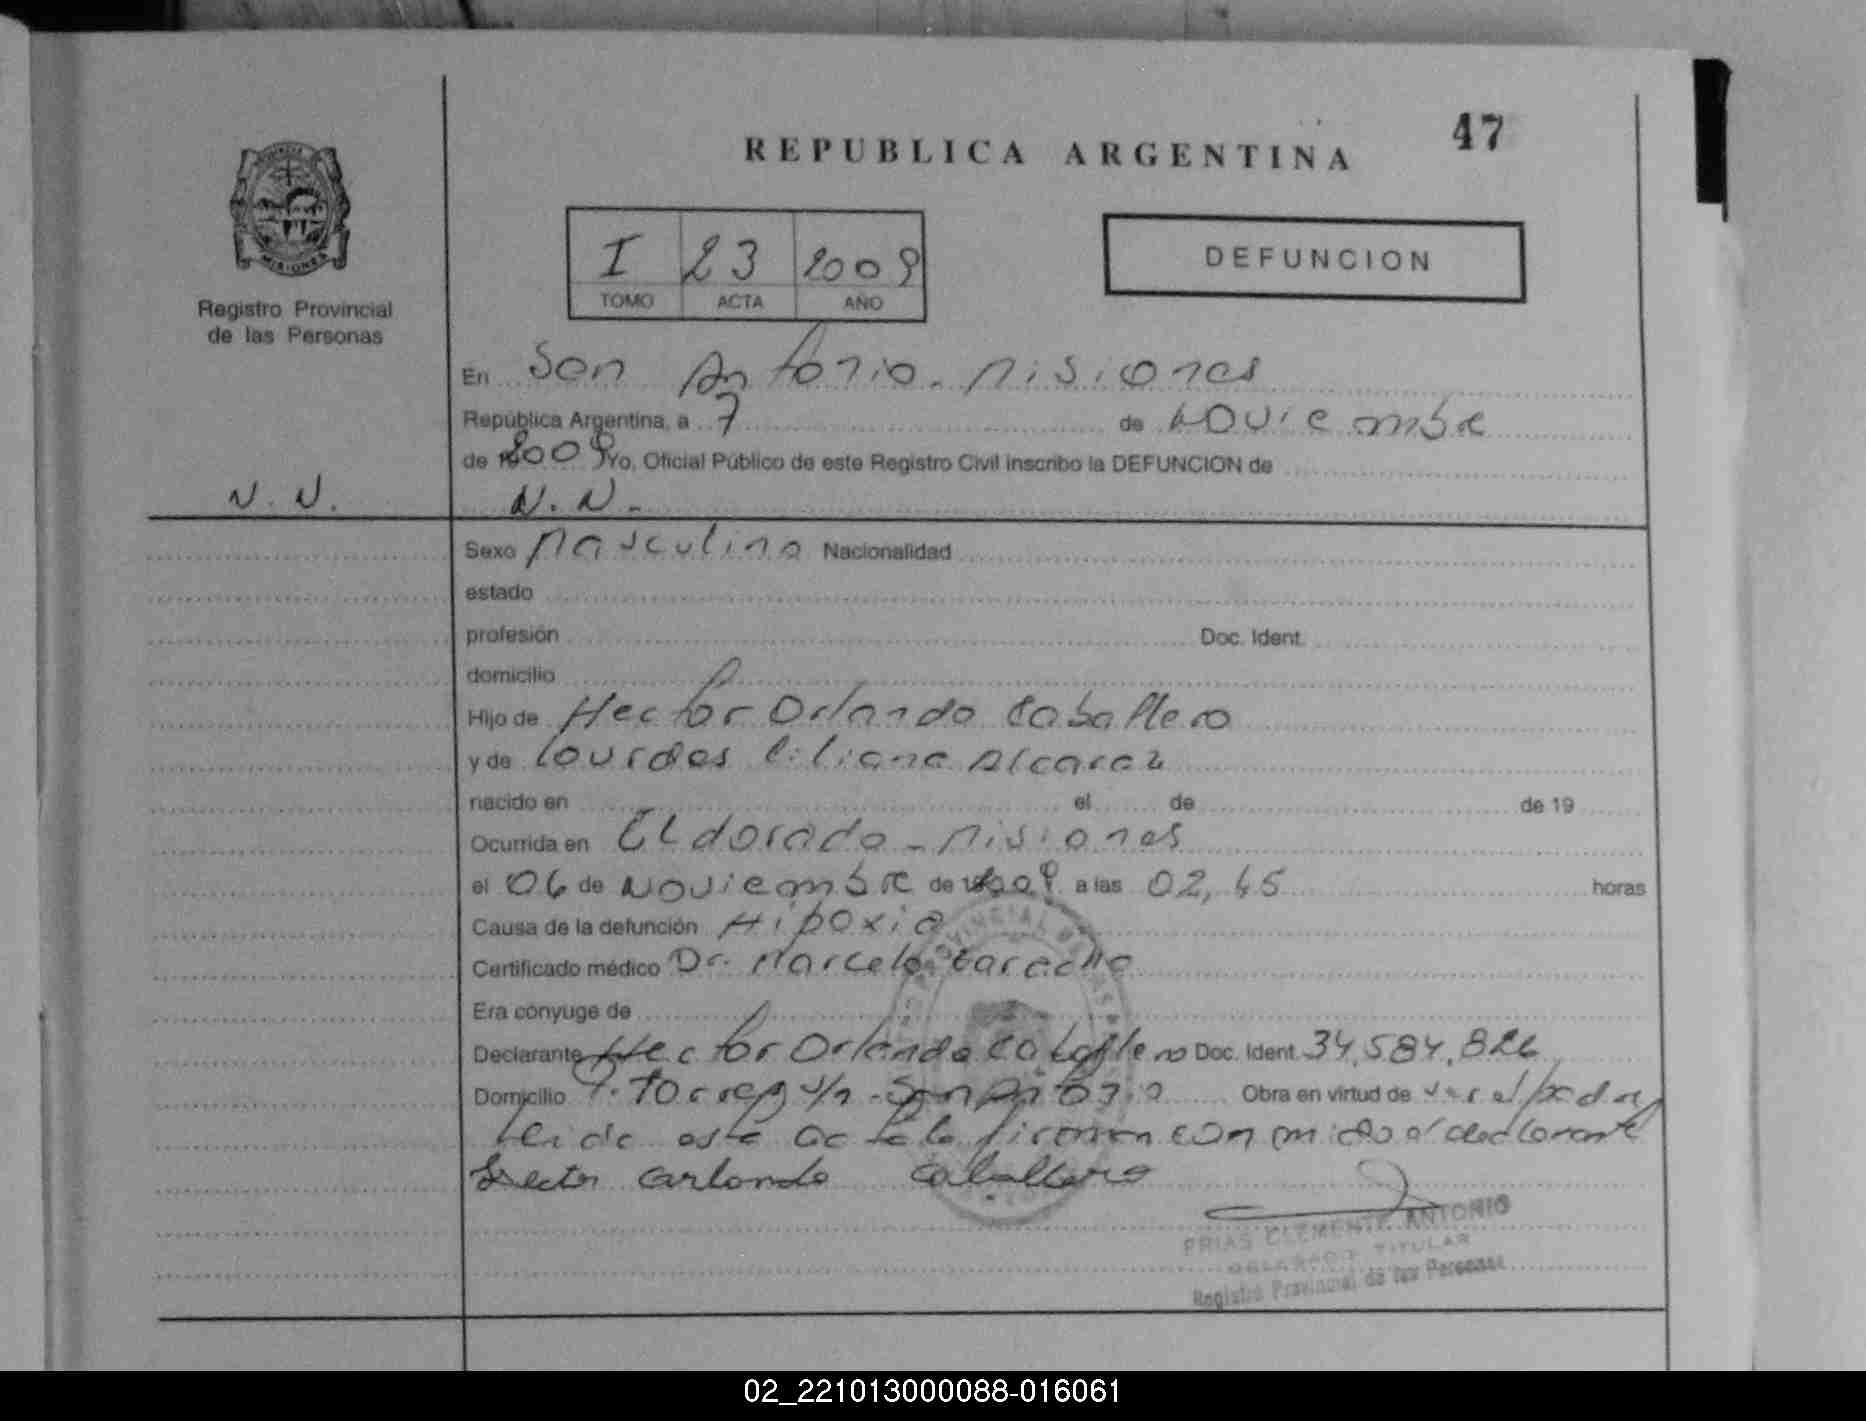 47
REPUBLICA ARGENTINA
PROVINCIA DE
MISIONES
Registro Provincial
de las Personas
I 23 2009
TOMO ACTA AÑO
DEFUNCION
En San Antonio - Misiones
República Argentina, a 7 de Noviembre
de 2009 Yo, Oficial Público de este Registro Civil inscribo la DEFUNCION de
N. N.
N. N. -
Sexo Masculino Nacionalidad
estado
profesión Doc. Ident.
domicilio
Hijo de Hector Orlando Caballero
y de Lourdes Liliana Alcaraz
nacido en el de de 19
Ocurrida en Eldorado - Misiones
el 06 de Noviembre de 2009 a las 02,45 horas
Causa de la defunción Hipoxia
Certificado médico Dr. Marcelo
Era cónyuge de
Declarante Hector Orlando Caballero Doc. Ident. 34,584,826
Domicilio S/n - San Antonio Obra en virtud de ser el padre
leida esta acta la firman con migo el declarante
Hector Orlando Caballero
FRIAS CLEMENTE ANTONIO
DELEGADO TITULAR
Registro Provincial de las Personas
02_221013000088-016061